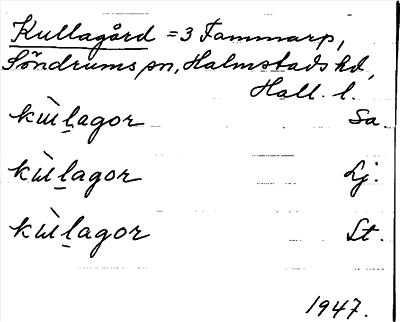 Kullagård = 3 Tammarp,
Söndrums sn, Halmstads hd,
Hall. l.
kùl̠agor Sa.
kùl̠agor Lj.
kùl̠agor St.
1947.